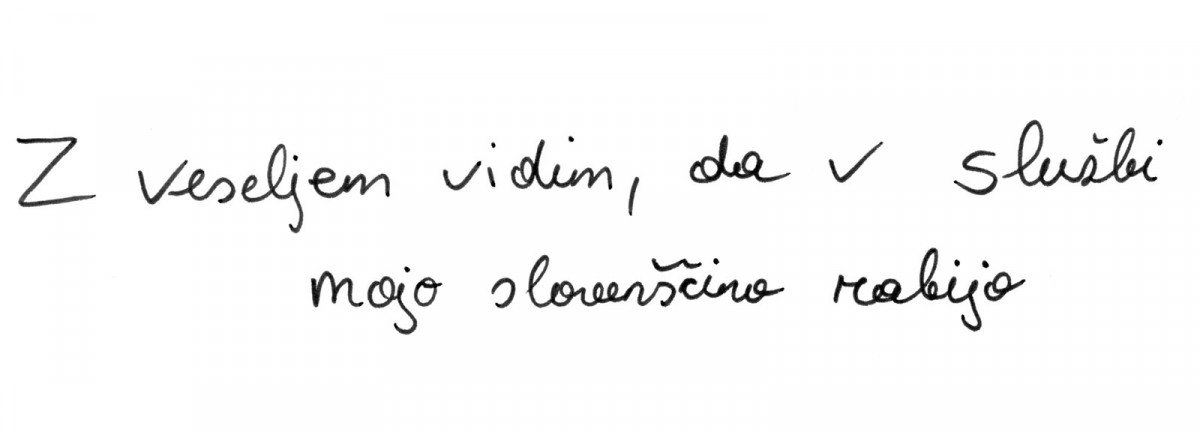 Z veseljem vidim, da v slušbi
mojo slovenščino rabijo